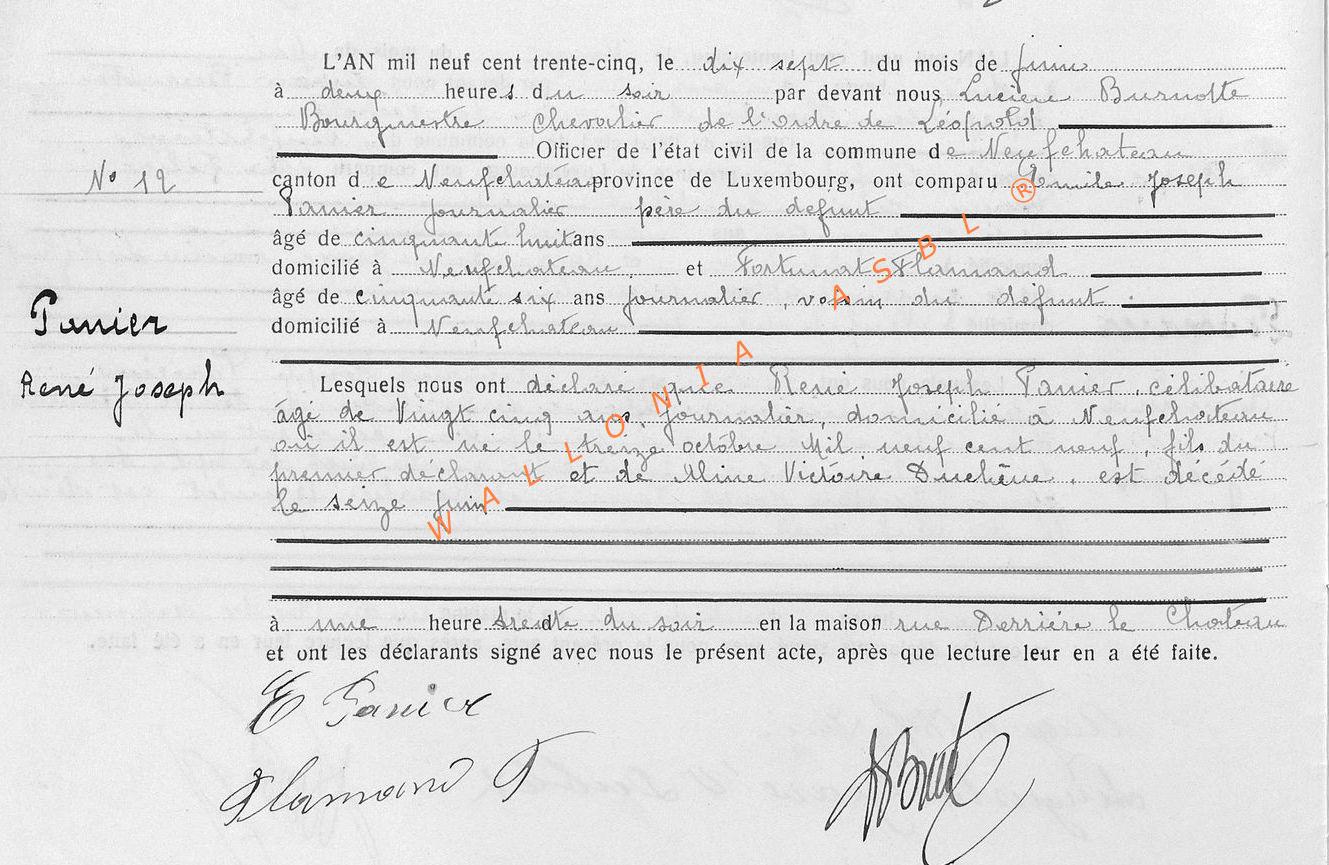 L'AN mil neuf cent trente-cinq, le dix sept du mois de juin
à deux heures du soir par devant nous, Lucien Burnotte
Bourgmestre Chevalier de l'ordre de Léopold
Officier de l'état civil de la commune de Neufchateau
N° 12
canton de Neufchateau province de Luxembourg, ont comparu Emile Joseph
Panier journalier père du defunt
âgé de cinquante huit ans
domicilié à Neufchateau, et Fortunat Flamand
âgé de cinquante six ans journalier, voisin du défunt
domicilié à Neufchateau
Panier
René Joseph
Lesquels nous ont déclaré que René Joseph Panier, célibataire
âgé de Vingt cinq ans, journalier, domicilié à Neufchateau
où il est né le treize octobre Mil neuf cent neuf, fils du
premier déclarant et de Mine Victoire Duchêne, est décédé
le seize juin
à une heure trente du soir en la maison rue Derrière le Chateau
et ont les déclarants signé avec nous le présent acte, après que lecture leur en a été faite.
E Panier
Flamand F
WALLONIA ASBL ®